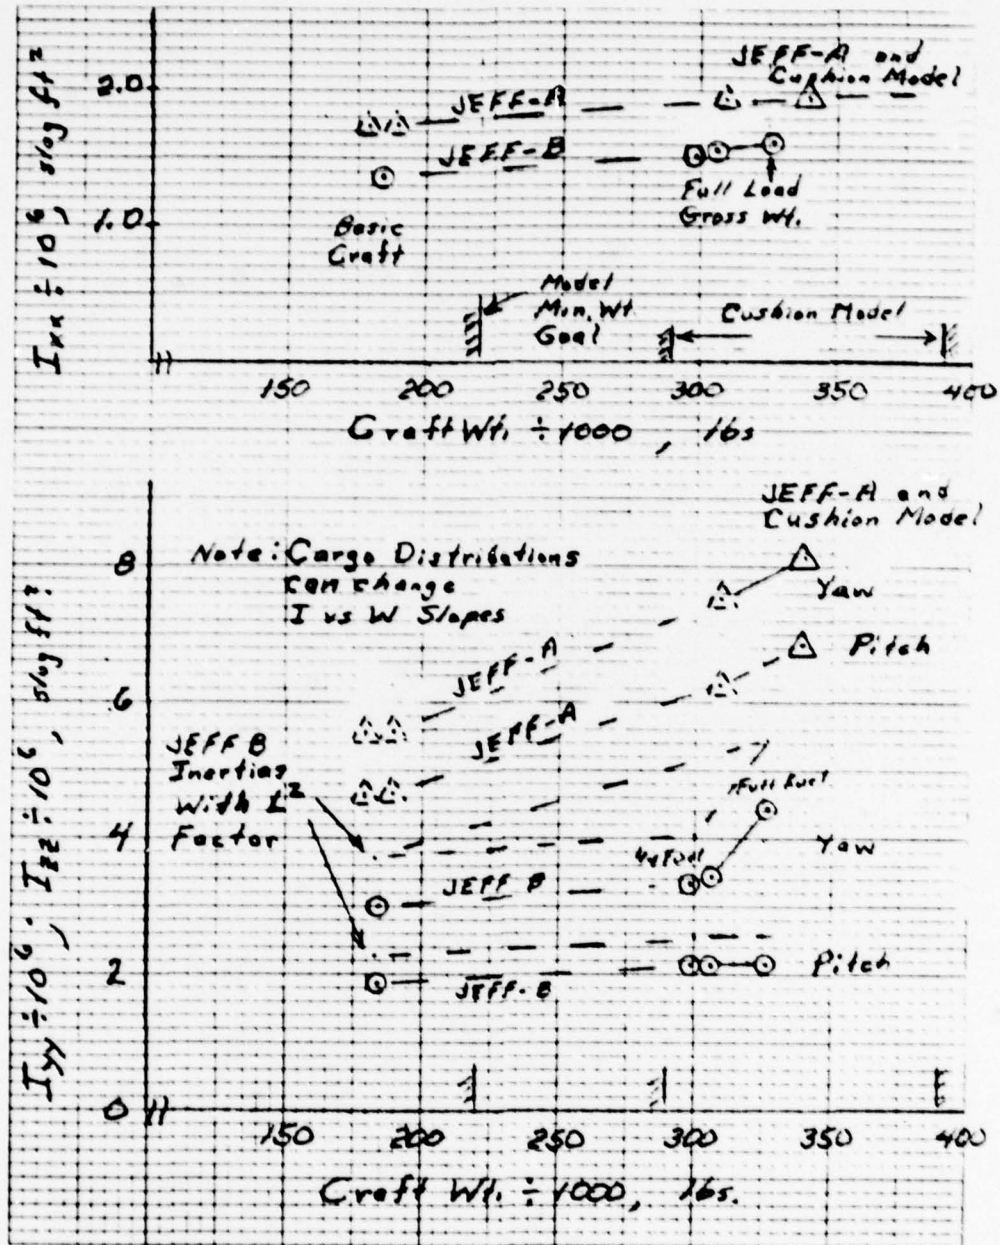 JEFF-A and
Cushion Model
2.0
JEFF-A
JEFF-B
Full Load
Gross Wt.
1.0
Basic
Craft
Model
Min. Wt.
Goal
Cushion Model
Ixx ÷ 10⁶, slug ft²
150 200 250 300 350 400
Craft Wt. ÷ 1000, lbs
JEFF-A and
Cushion Model
8
Note: Cargo Distributions
can change
I vs W Slopes
Yaw
JEFF-A
Pitch
6
JEFF-A
JEFF B
Inertias
With L²
Factor
Full Fuel
4
Yaw
JEFF B
2
Pitch
JEFF-B
Iyy ÷ 10⁶, Izz ÷ 10⁶, slug ft²
0
150 200 250 300 350 400
Craft Wt. ÷ 1000, lbs.